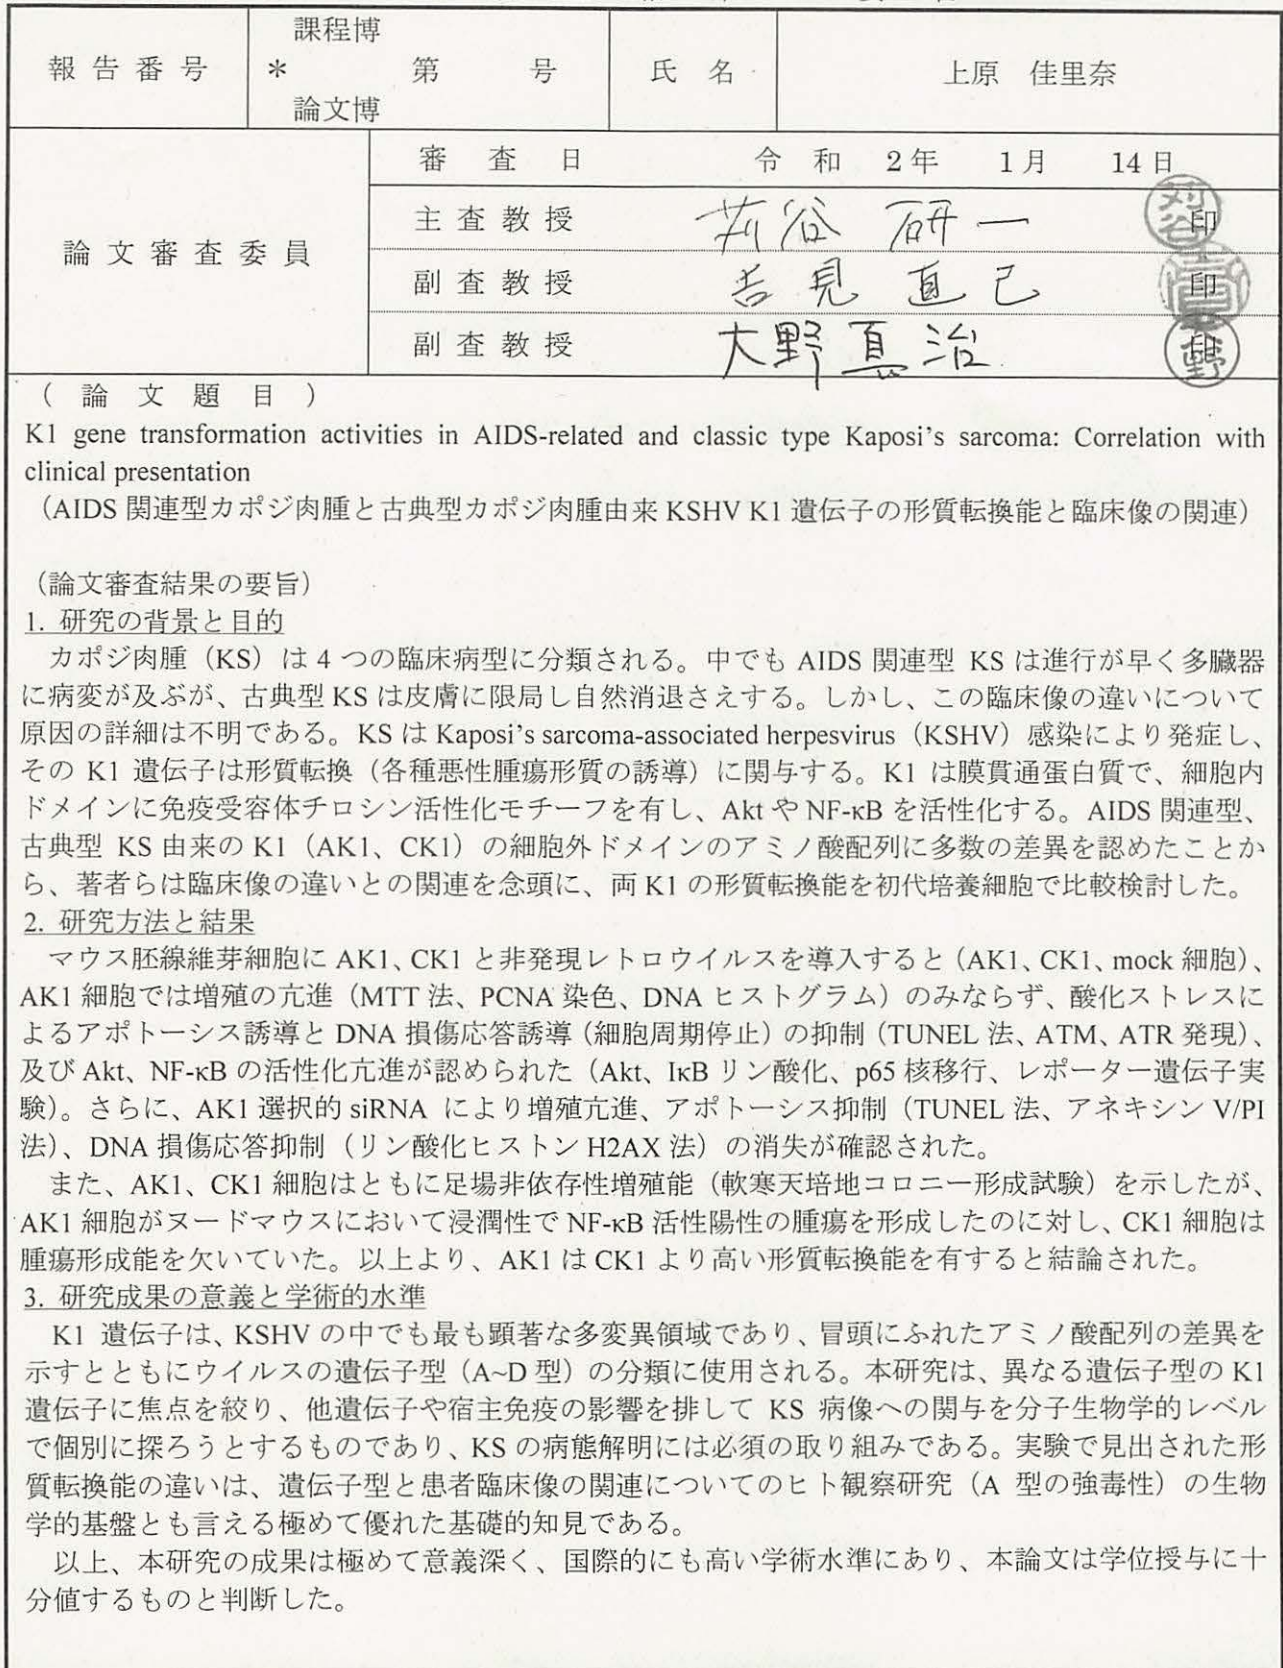 課程博
報告番号 ＊ 第 号 氏名 上原 佳里奈
論文博
審査日 令和 2年 1月 14日
論文審査委員
主査教授 苅谷 研一 印
副査教授 吉見 直己 印
副査教授 大野 真治 印
（論文題目）
K1 gene transformation activities in AIDS-related and classic type Kaposi's sarcoma: Correlation with
clinical presentation
（AIDS 関連型カポジ肉腫と古典型カポジ肉腫由来 KSHV K1 遺伝子の形質転換能と臨床像の関連）
（論文審査結果の要旨）
1. 研究の背景と目的
カポジ肉腫（KS）は 4 つの臨床病型に分類される。中でも AIDS 関連型 KS は進行が早く多臓器
に病変が及ぶが、古典型 KS は皮膚に限局し自然消退さえする。しかし、この臨床像の違いについて
原因の詳細は不明である。KS は Kaposi's sarcoma-associated herpesvirus（KSHV）感染により発症し、
その K1 遺伝子は形質転換（各種悪性腫瘍形質の誘導）に関与する。K1 は膜貫通蛋白質で、細胞内
ドメインに免疫受容体チロシン活性化モチーフを有し、Akt や NF-κB を活性化する。AIDS 関連型、
古典型 KS 由来の K1（AK1、CK1）の細胞外ドメインのアミノ酸配列に多数の差異を認めたことか
ら、著者らは臨床像の違いとの関連を念頭に、両 K1 の形質転換能を初代培養細胞で比較検討した。
2. 研究方法と結果
マウス胚線維芽細胞に AK1、CK1 と非発現レトロウイルスを導入すると（AK1、CK1、mock 細胞）、
AK1 細胞では増殖の亢進（MTT 法、PCNA 染色、DNA ヒストグラム）のみならず、酸化ストレスに
よるアポトーシス誘導と DNA 損傷応答誘導（細胞周期停止）の抑制（TUNEL 法、ATM、ATR 発現）、
及び Akt、NF-κB の活性化亢進が認められた（Akt、IκB リン酸化、p65 核移行、レポーター遺伝子実
験）。さらに、AK1 選択的 siRNA により増殖亢進、アポトーシス抑制（TUNEL 法、アネキシン V/PI
法）、DNA 損傷応答抑制（リン酸化ヒストン H2AX 法）の消失が確認された。
また、AK1、CK1 細胞はともに足場非依存性増殖能（軟寒天培地コロニー形成試験）を示したが、
AK1 細胞がヌードマウスにおいて浸潤性で NF-κB 活性陽性の腫瘍を形成したのに対し、CK1 細胞は
腫瘍形成能を欠いていた。以上より、AK1 は CK1 より高い形質転換能を有すると結論された。
3. 研究成果の意義と学術的水準
K1 遺伝子は、KSHV の中でも最も顕著な多変異領域であり、冒頭にふれたアミノ酸配列の差異を
示すとともにウイルスの遺伝子型（A~D 型）の分類に使用される。本研究は、異なる遺伝子型の K1
遺伝子に焦点を絞り、他遺伝子や宿主免疫の影響を排して KS 病像への関与を分子生物学的レベル
で個別に探ろうとするものであり、KS の病態解明には必須の取り組みである。実験で見出された形
質転換能の違いは、遺伝子型と患者臨床像の関連についてのヒト観察研究（A 型の強毒性）の生物
学的基盤とも言える極めて優れた基礎的知見である。
以上、本研究の成果は極めて意義深く、国際的にも高い学術水準にあり、本論文は学位授与に十
分値するものと判断した。